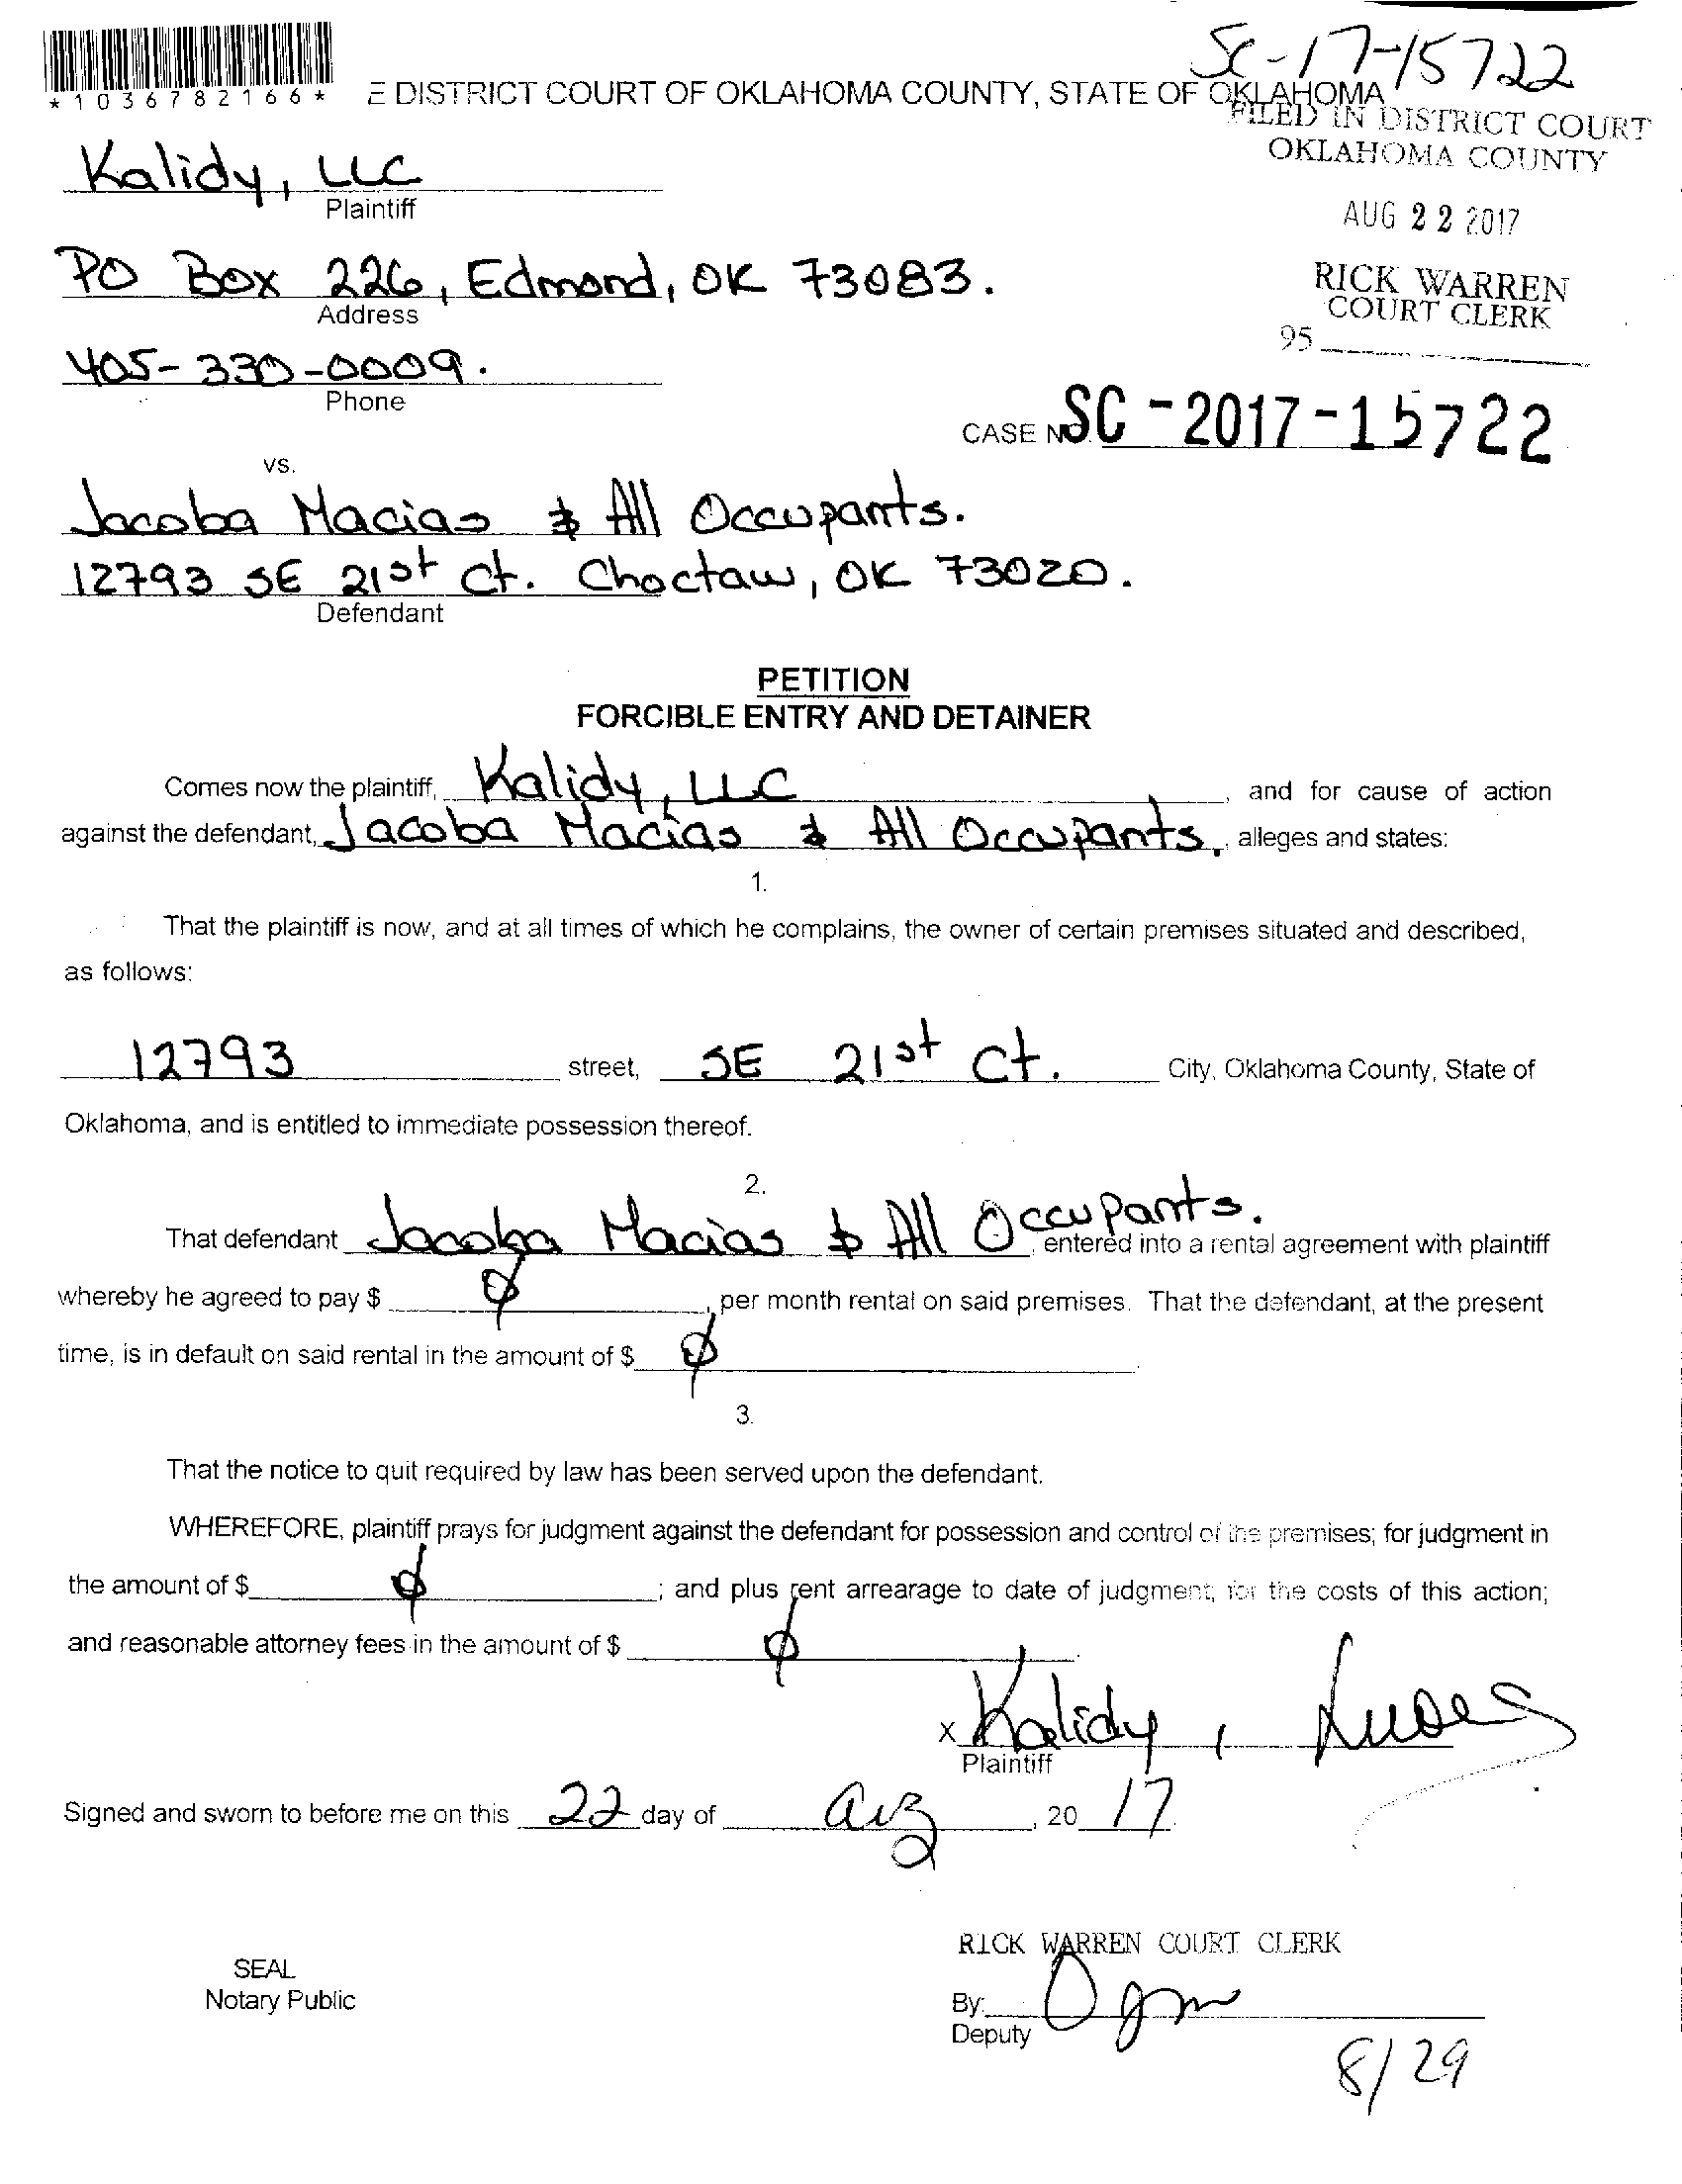 SC-17-15722
*1036782166*
E DISTRICT COURT OF OKLAHOMA COUNTY, STATE OF OKLAHOMA
FILED IN DISTRICT COURT
OKLAHOMA COUNTY
Kalidy, LLC
Plaintiff
AUG 22 2017
PO Box 226, Edmond, OK 73083.
Address
RICK WARREN
COURT CLERK
95
405-330-0009.
Phone
CASE NO. SC-2017-15722
vs.
Jacoba Macias & All Occupants.
12793 SE 21st Ct. Choctaw, OK 73020.
Defendant
PETITION
FORCIBLE ENTRY AND DETAINER
Comes now the plaintiff, Kalidy, LLC, and for cause of action
against the defendant, Jacoba Macias & All Occupants., alleges and states:
1.
That the plaintiff is now, and at all times of which he complains, the owner of certain premises situated and described,
as follows:
12793 street, SE 21st Ct. City, Oklahoma County, State of
Oklahoma, and is entitled to immediate possession thereof.
2.
That defendant Jacoba Macias & All Occupants. entered into a rental agreement with plaintiff
whereby he agreed to pay $ ø, per month rental on said premises. That the defendant, at the present
time, is in default on said rental in the amount of $ ø
3.
That the notice to quit required by law has been served upon the defendant.
WHEREFORE, plaintiff prays for judgment against the defendant for possession and control of the premises; for judgment in
the amount of $ ø; and plus rent arrearage to date of judgment; for the costs of this action;
and reasonable attorney fees in the amount of $ ø.
X Kalidy,
Plaintiff
Signed and sworn to before me on this 22 day of Aug, 20 17
RICK WARREN COURT CLERK
SEAL
Notary Public
By:
Deputy
8/29